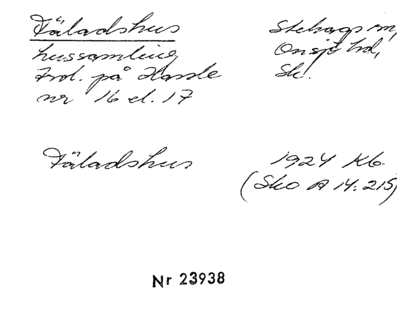 Fäladshus
Stehags sn,
hussamling
Onsjö hd,
Frol. på Hassle
Sk.
nr 16 el. 17
Fäladshus
1924 Kb.
(Sko A 14:215)
Nr 23938